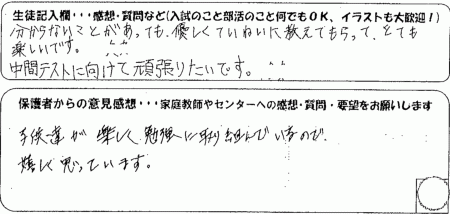 生徒記入欄・・・感想・質問など(入試のこと部活のこと何でもOK、イラストも大歓迎!)
分からないことがあっても、優しくていねいに教えてもらって、とても
楽しいです。
中間テストに向けて頑張りたいです。
保護者からの意見感想・・・家庭教師やセンターへの感想・質問・要望をお願いします
子供達が楽しく勉強に取り組んでいるので、
嬉しく思っています。